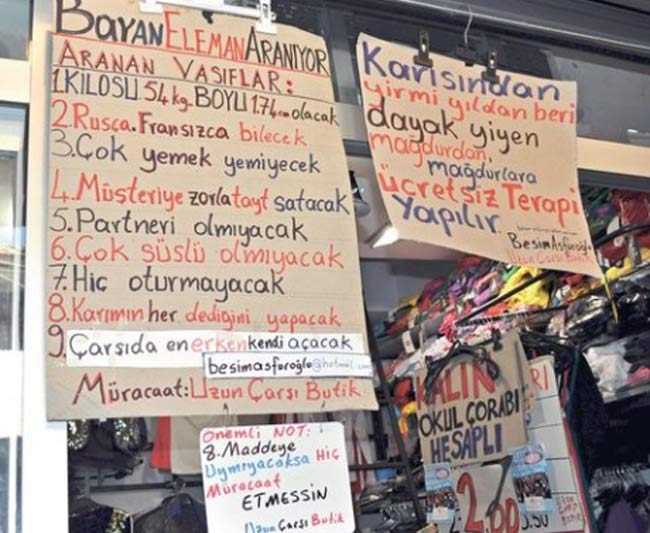 BAYAN ELEMAN ARANIYOR
ARANAN VASIFLAR:
1.KİLOSU 54 kg. BOYU 1.74 cm olacak
2. Rusça. Fransızca bilecek
3. Çok yemek yemiyecek
4. Müşteriye zorla tayt satacak
5. Partneri olmıyacak
6. Çok süslü olmıyacak
7. Hiç oturmayacak
8. Karımın her dediğini yapacak
9. Çarşıda en erken kendi açacak
besimasfuroğlu@hotmail.com
Müracaat: Uzun Çarşı Butik
Karısından
yirmi yıldan beri
dayak yiyen
mağdurdan,
mağdurlara
ücretsiz Terapi
yapılır
Besim Asfuroğlu
Uzun Çarşı Butik
Önemli NOT:
8. Maddeye
Uymıyacaksa Hiç
Müracaat
ETMESSİN
Uzun Çarşı Butik
KALIN
OKUL ÇORABI
HESAPLI
2.00
3.50